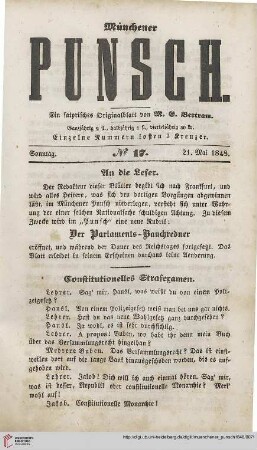 Münchener
PUNSCH.
Ein satyrisches Originalblatt von M. E. Bertram.
Ganzjährig 2 fl., halbjährig 1 fl., vierteljährig 30 kr.
Einzelne Nummern kosten 3 Kreuzer.
Sonntag. Nº 17. 21. Mai 1848.
An die Leser.
Der Redakteur dieser Blätter begibt sich nach Frankfurt, und
wird alles Heitere, was sich den dortigen Vorgängen abgewinnen
läßt, im Münchener Punsch niederlegen, versteht sich unter Wah-
rung der einer solchen Nationalsache schuldigen Achtung. Zu diesem
Zwecke wird im „Punsch“ eine neue Rubrik:
Der Parlaments-Bauchredner
eröffnet, und während der Dauer des Reichstages fortgesetzt. Das
Blatt erleidet in seinem Erscheinen durchaus keine Aenderung.
Constitutionelles Strafexamen.
Lehrer. Sag' mir, Hansl, was weißt du von einem Poli-
zeigesetz?
Hansl. Von einem Polizeigesetz weiß man bei uns gar nichts.
Lehrer. Hast du das neue Wahlgesetz ganz durchgesehen?
Hansl. Ja wohl, es ist sehr durchsichtig.
Lehrer. Bravo! A propos, wo habt ihr denn mein Buch
über das Versammlungsrecht hingethan?
Mehrere Buben. Das Versammlungsrecht? Das ist auf
der
Lehrer. Jakob! Dich will ich auch einmal hören. Sag' mir,
was ist besser, Republik oder constitutionelle Monarchie? Merk'
wohl auf!
Jakob. Constitutionelle Monarchie!